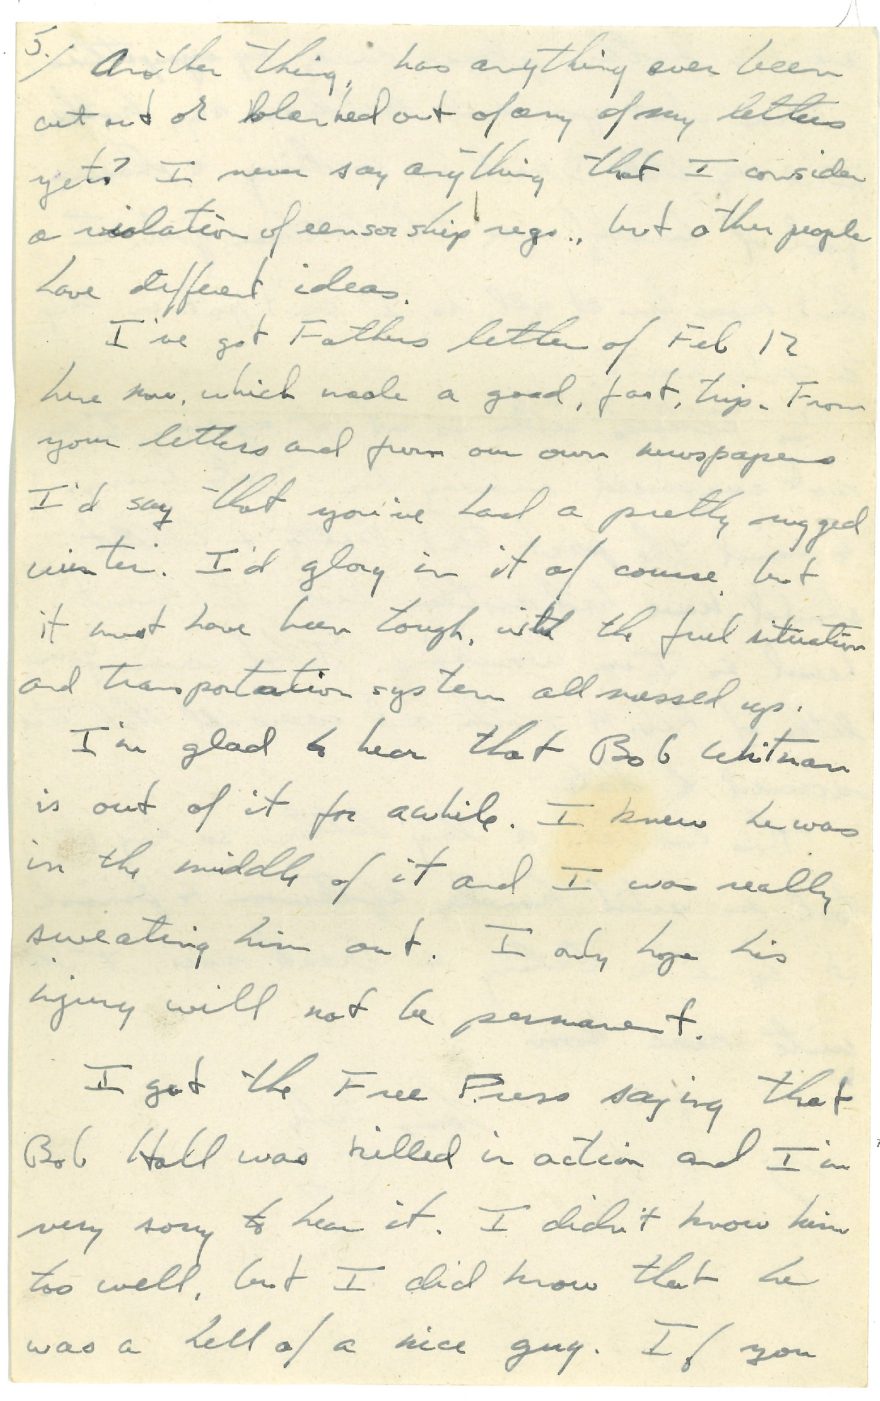 5./ Another thing, has anything ever been
cut out or blanked out of any of my letters
yet? I never say anything that I consider
a violation of censorship regs., but other people
have different ideas.
I've got Fathers letter of Feb 12
here now, which made a good, fast, trip. From
your letters and from our own newspapers
I'd say that you've had a pretty rugged
winter. I'd glory in it of course, but
it must have been tough, with the fuel situation
and transportation system all messed up.
I'm glad to hear that Bob Whitman
is out of it for awhile. I knew he was
in the middle of it and I was really
sweating him out. I only hope his
injury will not be permanent.
I got the Free Press saying that
Bob Hall was killed in action and I'm
very sorry to hear it. I didn't know him
too well, but I did know that he
was a hell of a nice guy. If you